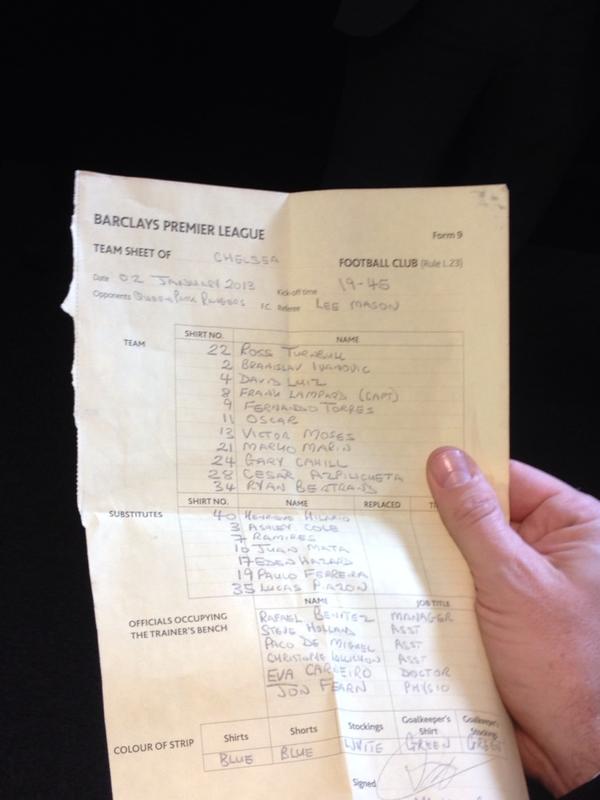 BARCLAYS PREMIER LEAGUE
Form 9
TEAM SHEET OF CHELSEA FOOTBALL CLUB (Rule L.23)
Date 02 JANUARY 2013 Kick-off time 19-45
Opponents QUEENS PARK RANGERS F.C. Referee LEE MASON
SHIRT NO. NAME
TEAM
22 ROSS TURNBULL
2 BRANISLAV IVANOVIC
4 DAVID LUIZ
8 FRANK LAMPARD (CAPT)
9 FERNANDO TORRES
11 OSCAR
13 VICTOR MOSES
21 MARKO MARIN
24 GARY CAHILL
28 CESAR AZPILICUETA
34 RYAN BERTRAND
SHIRT NO. NAME REPLACED
SUBSTITUTES
40 HENRIQUE HILARIO
3 ASHLEY COLE
7 RAMIRES
10 JUAN MATA
17 EDEN HAZARD
19 PAULO FERREIRA
35 LUCAS PIAZON
NAME JOB TITLE
OFFICIALS OCCUPYING THE TRAINER'S BENCH
RAFAEL BENITEZ MANAGER
STEVE HOLLAND ASST
PACO DE MIGUEL ASST
CHRISTOPHE ASST
EVA CARNEIRO DOCTOR
JON FEARN PHYSIO
COLOUR OF STRIP
Shirts Shorts Stockings Goalkeeper's Shirt Goalkeeper's Stockings
BLUE BLUE WHITE GREEN GREEN
Signed